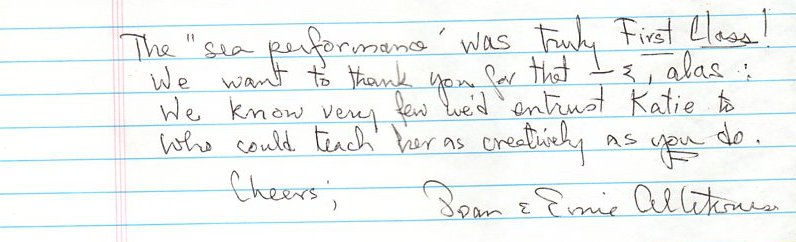 The "sea performance" was truly First Class!
We want to thank you for that – &, alas:
We know very few we'd entrust Katie to
who could teach her as creatively as you do.
Cheers, & Ernie